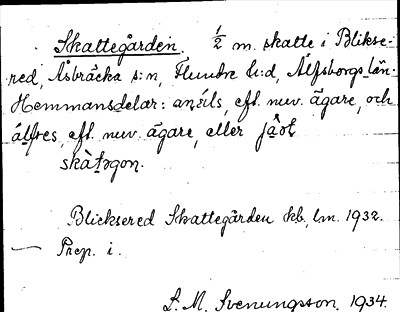 Skattegården. ½ m. skatte i Blikse-
red, Åsbräcka s:n, Flundre h:d, Älfsborgs län.
Hemmansdelar: , eft. nuv. ägare, och
 eft. nuv. ägare, eller

Blicksered Skattegården kb. lm. 1932.
— Prep. i.
S. M. Svenungsson. 1934.